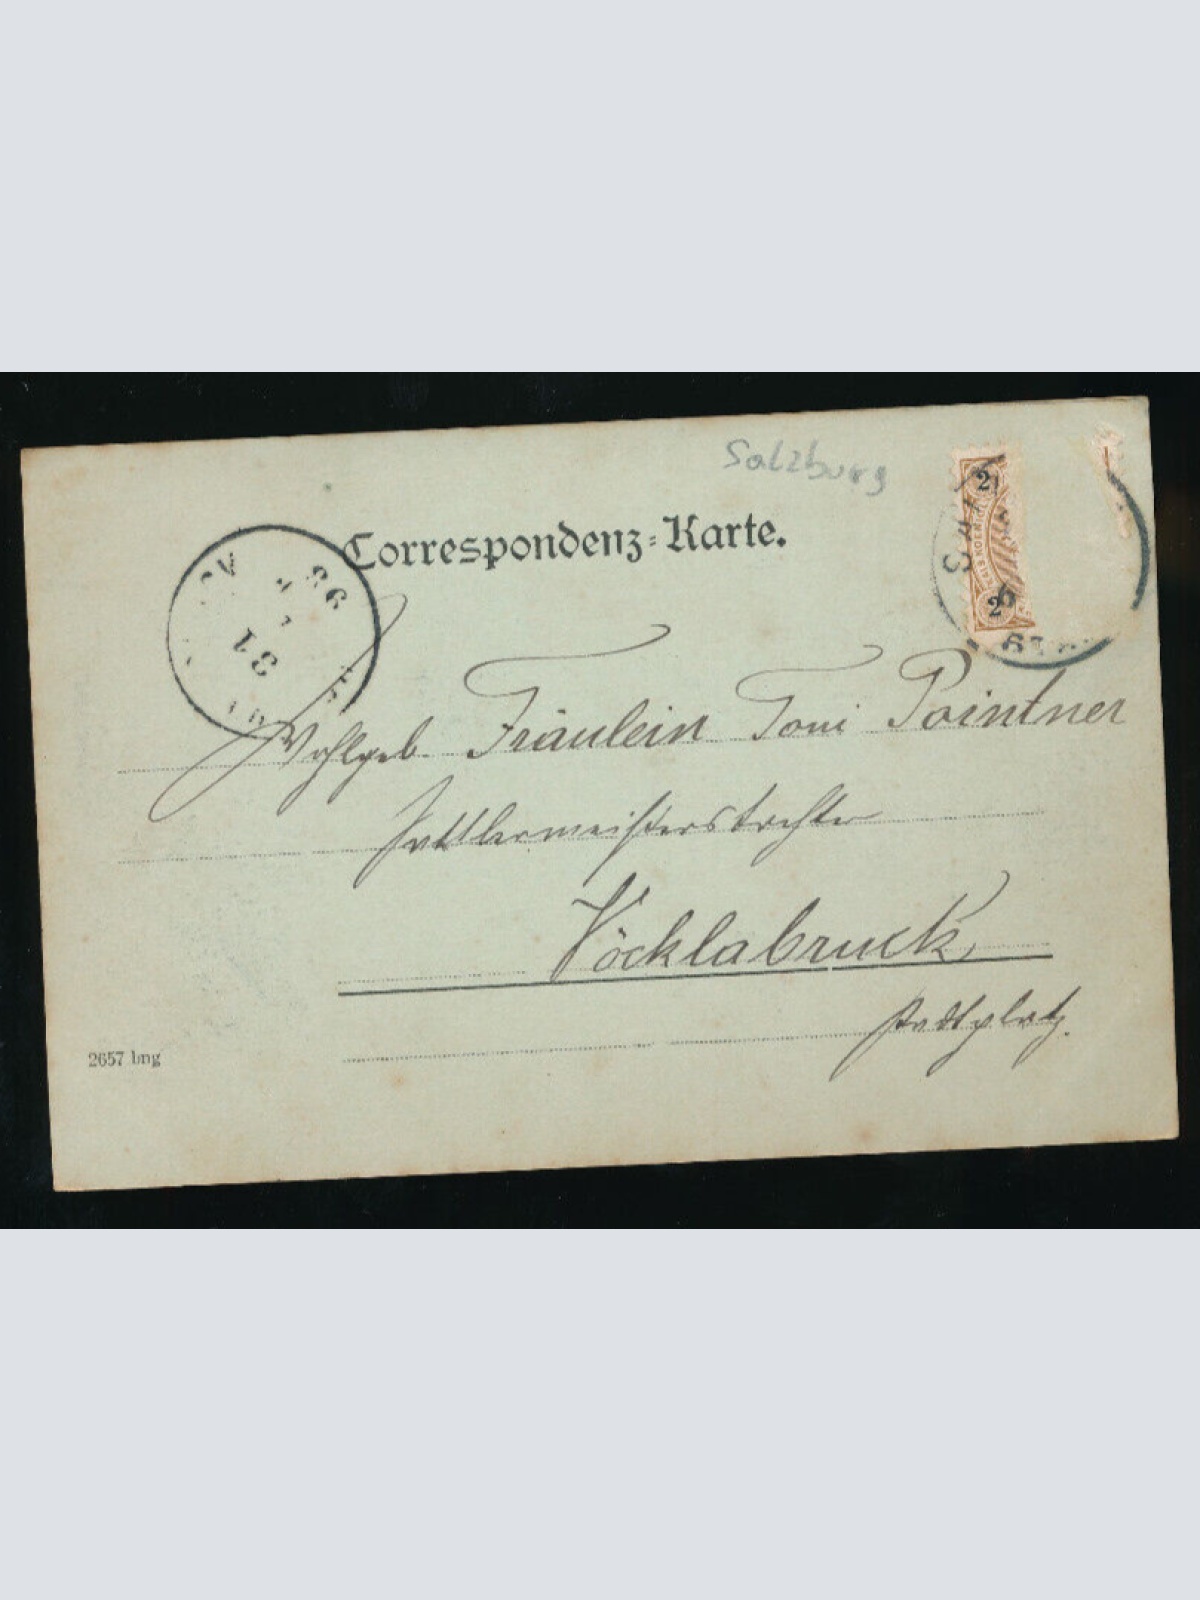 Salzburg
Correspondenz-Karte.
2
2
98
31
Wohlgeb. Fräulein Toni Pointner
Sattlermeisterstochter
Vöcklabruck,
Stadtplatz.
2657 bng